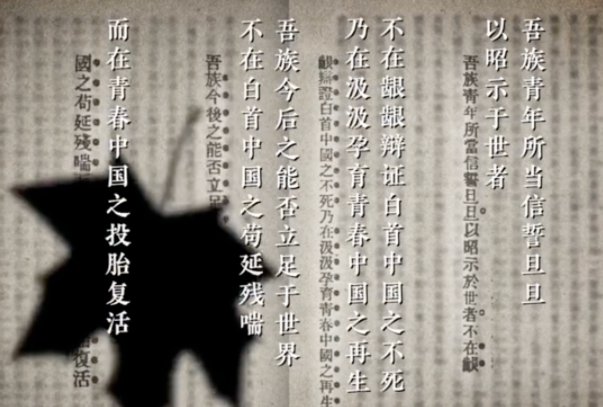 吾族青年所当信誓旦旦
以昭示于世者
吾族青年所當信誓旦旦以昭示於世者不在齦
不在龈龈辩证白首中国之不死
乃在汲汲孕育青春中国之再生
齦辯證白首中國之不死乃在汲汲孕育青春中國之再生
吾族今后之能否立足于世界
不在白首中国之苟延残喘
吾族今後之能否立足
而在青春中国之投胎复活
國之苟延殘喘
復活